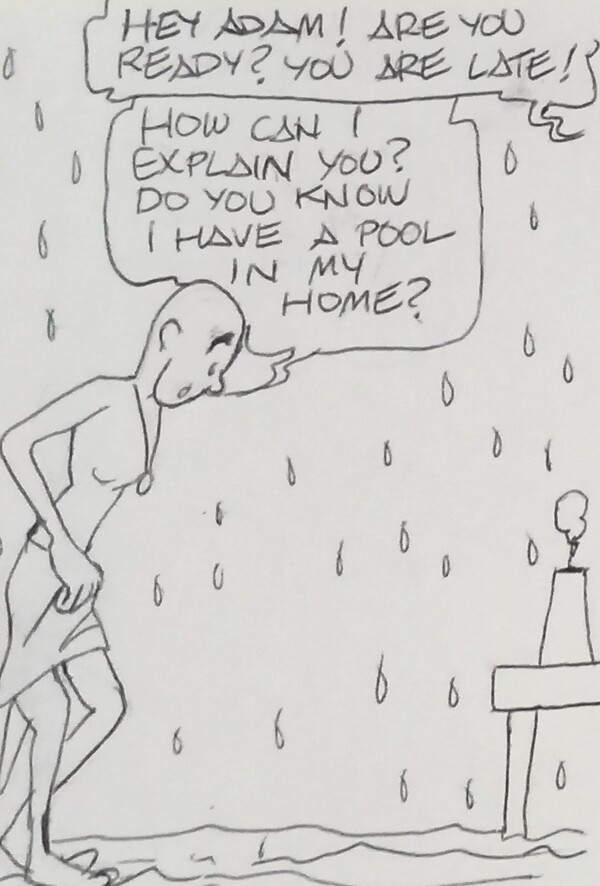 HEY ADAM! ARE YOU
READY? YOU ARE LATE!
HOW CAN I
EXPLAIN YOU?
DO YOU KNOW
I HAVE A POOL
IN MY
HOME?